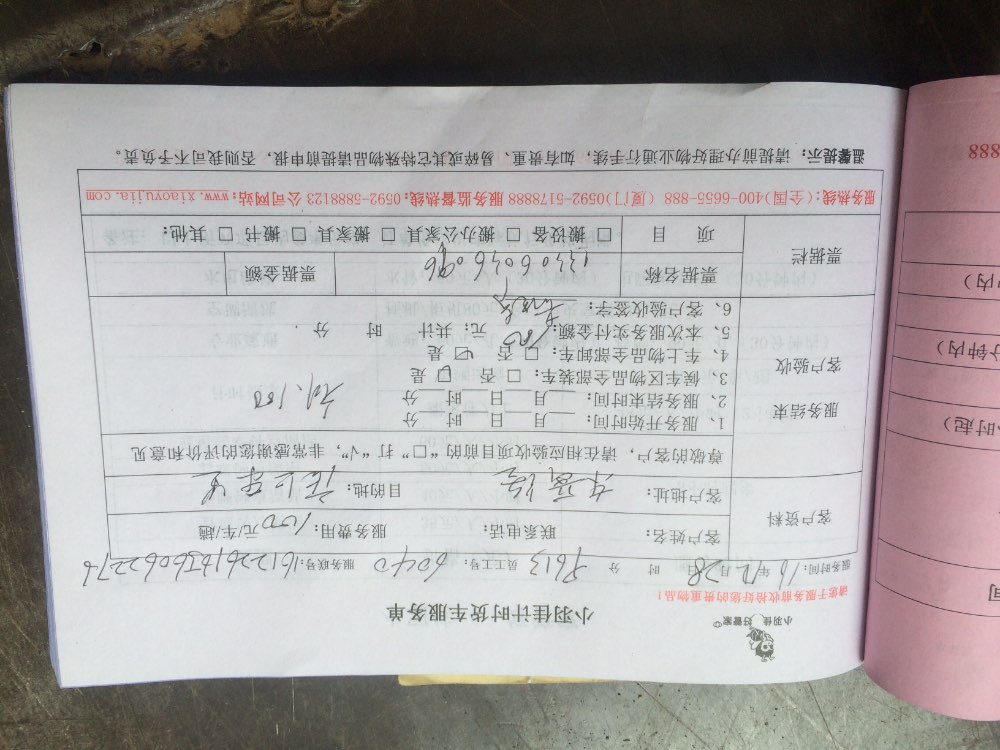 小羽佳 好管家
小羽佳计时货车服务单
请您于服务前收拾好您的贵重物品！
服务时间: 16年12月28日 时 分 员工工号: 6040 服务联号:
客户资料
客户姓名: 联系电话: 服务费用: 100元/车/趟
客户地址: 目的地:
尊敬的客户，请在相应验收项目前的“□”打“√”，非常感谢您的评价和意见
服务结束
客户验收
1、服务开始时间: 月 日 时 分
2、服务结束时间: 月 日 时 分
3、候车区物品全部装车: □ 否 ☑ 是
4、车上物品全部卸车: □ 否 ☑ 是
5、本次服务实付金额: 100 元; 共计 时 分
6、客户验收签字:
票据栏
票据名称 票据金额
13406036096
项 目 □ 搬设备 □ 搬办公家具 □ 搬家具 □ 搬书 □ 其他:
服务热线:(全国)400-6655-888 (厦门)0592-5178888 服务监督热线:0592-5888123 公司网站:www.xiaoyujia.com
温馨提示: 请提前办理好物业通行手续，如有贵重、易碎或其它特殊物品请提前申报，否则我司不予负责。